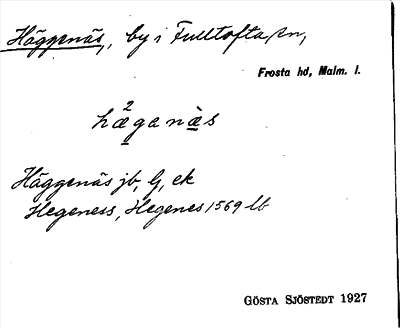 Häggenäs, by i Fulltofta sn,
Frosta hd, Malm. l.
hæ²ganæ̀s
Häggenäs jb, G, ek
Hegeness, Hegenes 1569 lb
GÖSTA SJÖSTEDT 1927